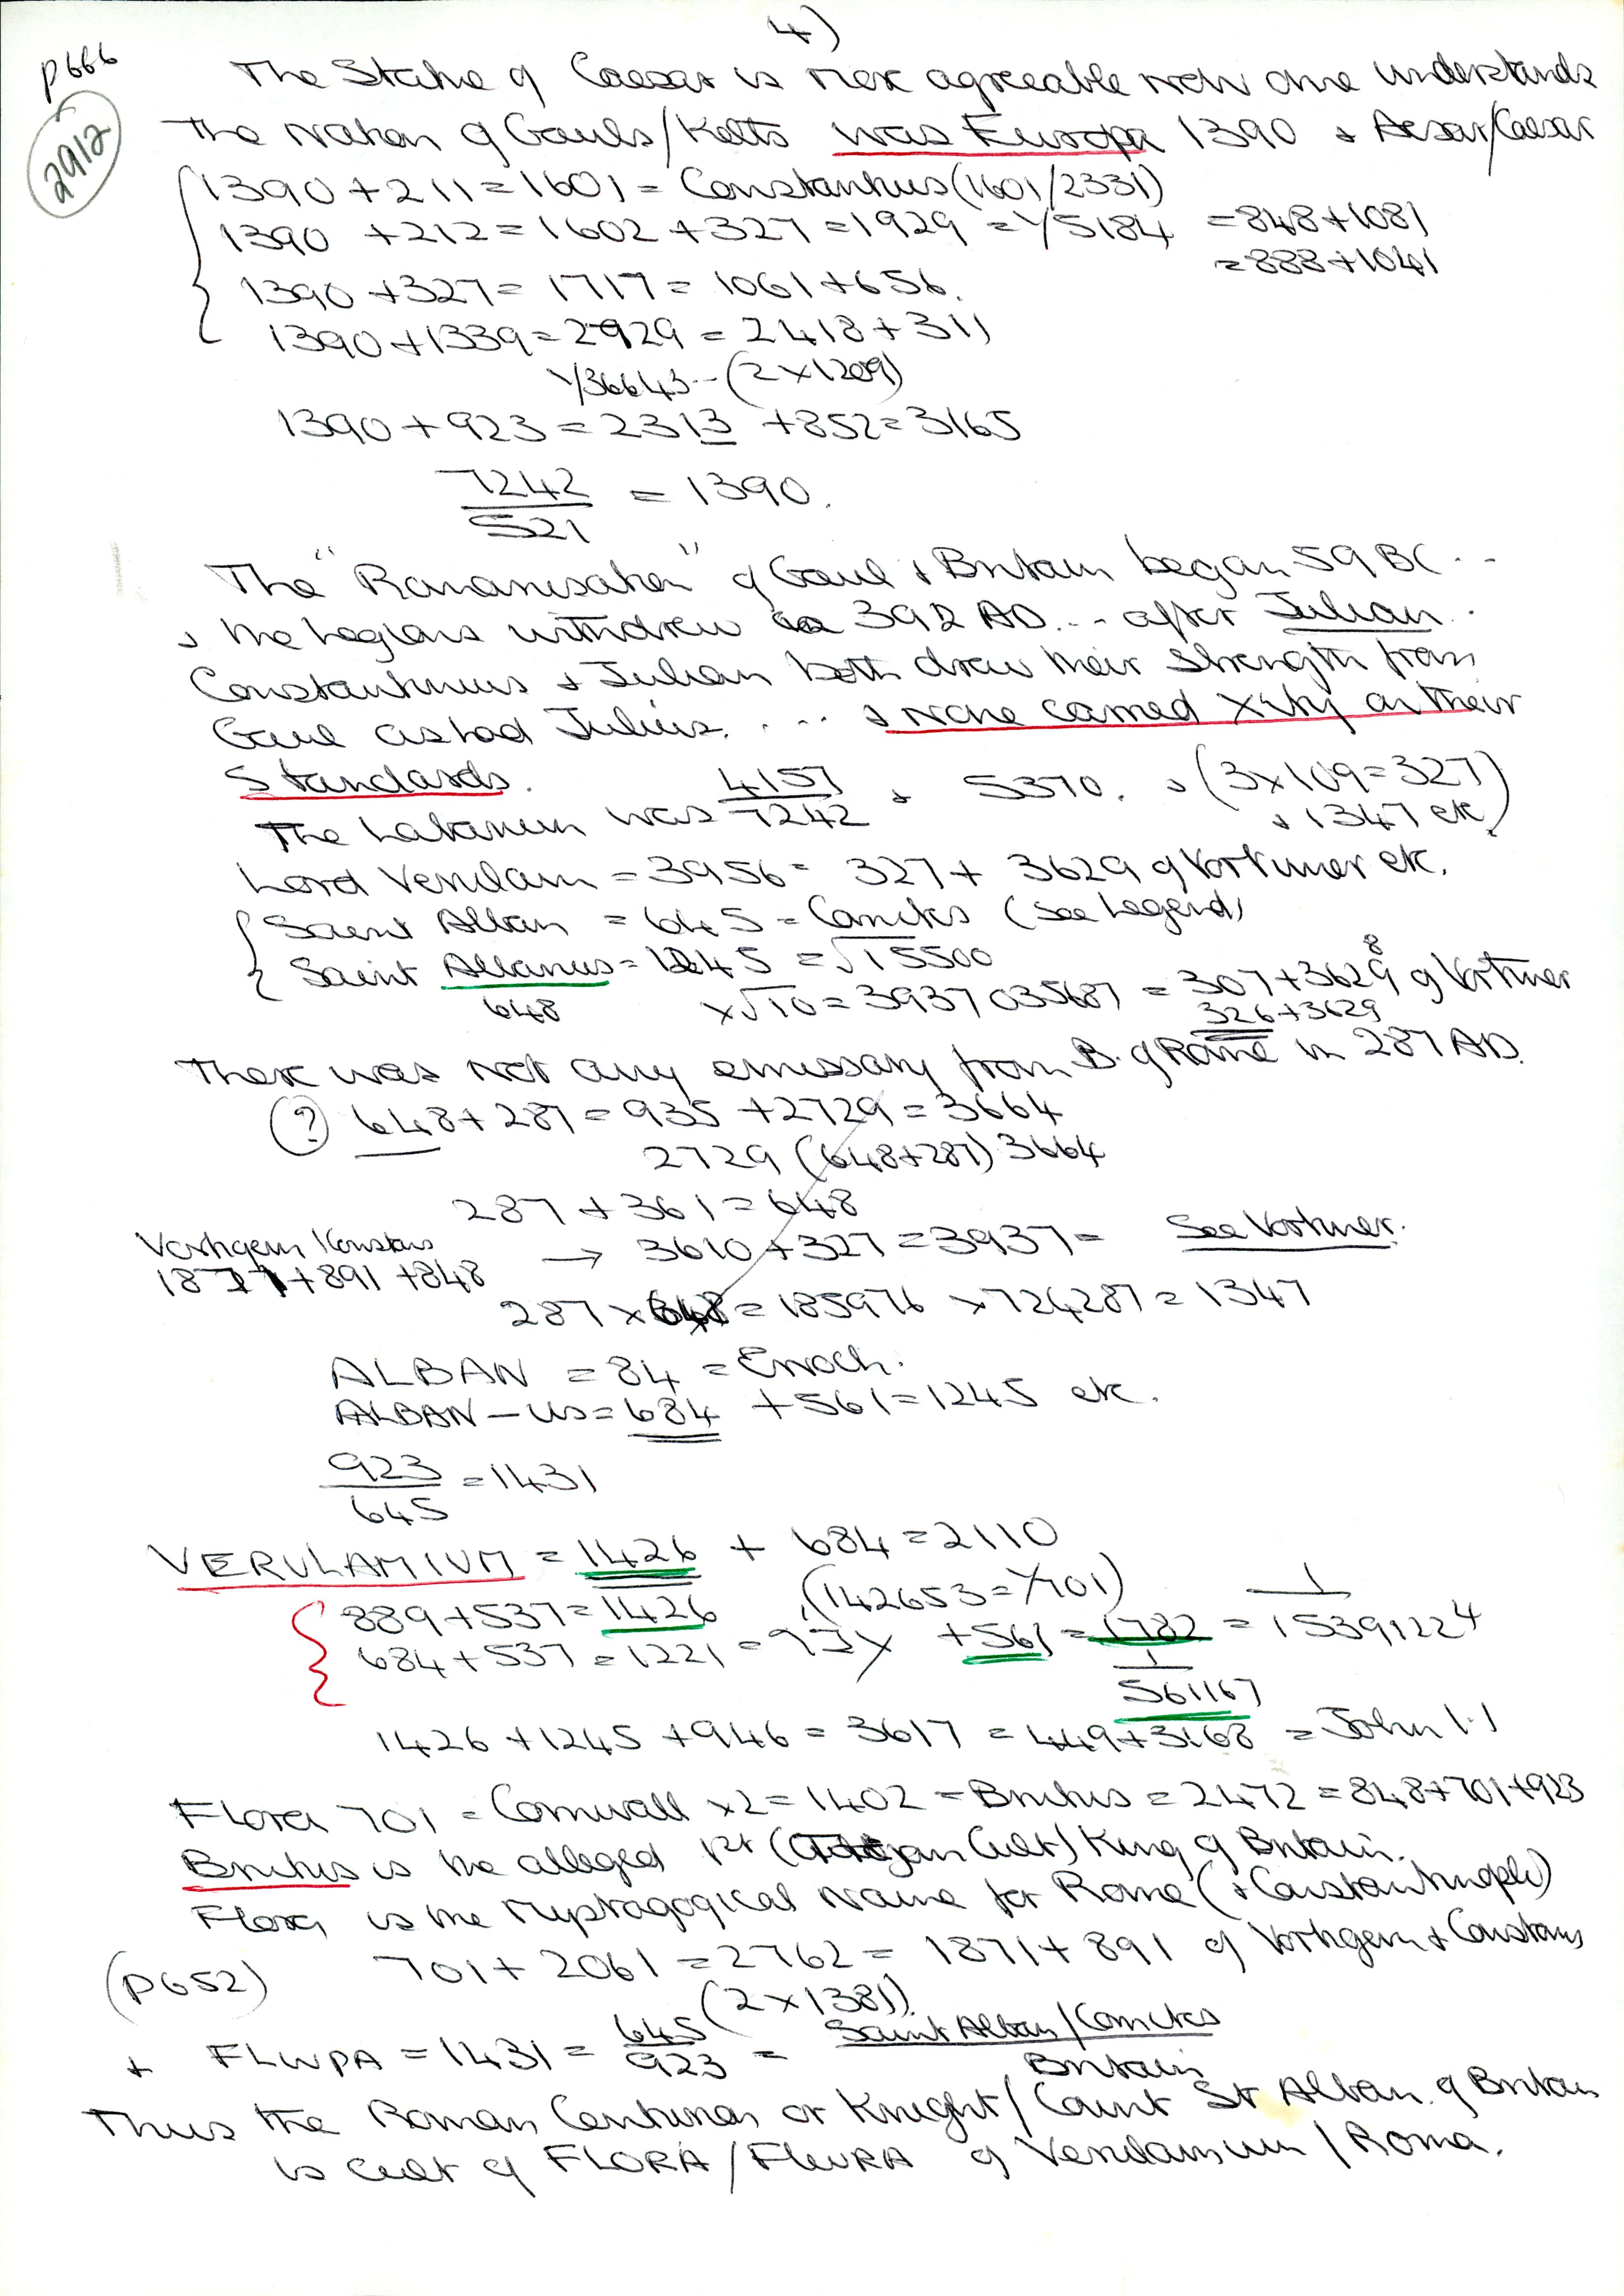 4)
P666
2912
The State of Caesar is more agreeable now one understands
The Nation of Gauls/Kelts was Europa 1390 + Aesar/Caesar
1390 + 211 = 1601 = Constantius (1601/2331)
1390 + 212 = 1602 + 327 = 1929 = 1/5184 = 848 + 1081
= 888 + 1041
1390 + 327 = 1717 = 1061 + 656.
1390 + 1339 = 2729 = 2418 + 311
1/36643-- (2 x 1209)
1390 + 923 = 2313 + 852 = 3165
7242/521 = 1390.
The "Romanisation" of Gaul + Britain began 59 BC --
+ the Legions withdrew 392 AD... after Julian.
Constantinus + Julian both drew their strength from
Gaul as had Julius. ... + None carried Xity on their
Standards.
The Labarum was 4157/7242 + 5370. + (3 x 109 = 327)
+ 1347 etc)
Lord Verulam = 3956 = 327 + 3629 of Vortimer etc.
Saint Alban = 645 = Comites (see Legend)
Saint Albanus = 1245 = √15500
648 x √10 = 3937 035687 = 307 + 3629 8 of Vortimer
326 + 3629
There was not any emissary from B. of Rome in 287 AD.
(?) 648 + 287 = 935 + 2729 = 3664
2729 (648 + 287) 3664
287 + 361 = 648
Vortigern/Constans → 3610 + 327 = 3937 = See Vortimer.
1871 + 891 + 848
287 x 648 = 185976 x 724287 = 1347
ALBAN = 84 = Enoch.
ALBAN - us = 684 + 561 = 1245 etc.
923/645 = 1431
VERULAMIUM = 1426 + 684 = 2110
889 + 537 = 1426 (142653 = 1/701)
684 + 537 = 1221 = + 561 = 1782 = 1/15391224
1/561167
1426 + 1245 + 946 = 3617 = 449 + 3168 = John 1.1
Flora 701 = Cornwall x 2 = 1402 = Brutus = 2472 = 848 + 701 + 923
Brutus is the alleged 1st (Trojan Cult) King of Britain.
Flora is the mystagogical Name for Rome (+ Constantinople)
701 + 2061 = 2762 = 1871 + 891 of Vortigern + Constans
(P652) (2 x 1381)
+ FLWPA = 1431 = 645/923 = Saint Alban/Comites
Britain
Thus the Roman Centurion or Knight/Count St Alban of Britain
is Cult of FLORA/FLWRA of Verulamium/Roma.